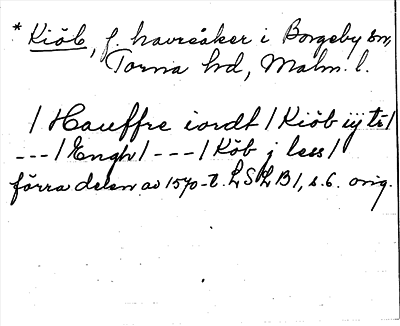 * Kiöb, f. havresåker i Borgeby sn,
Torna hd, Malm. l.
/ Hauffre iordt / Kiöb iij tr /
--- / Engh / --- / Köb j less /
förra delen av 1570-t. LSLB 1, s. 6. orig.